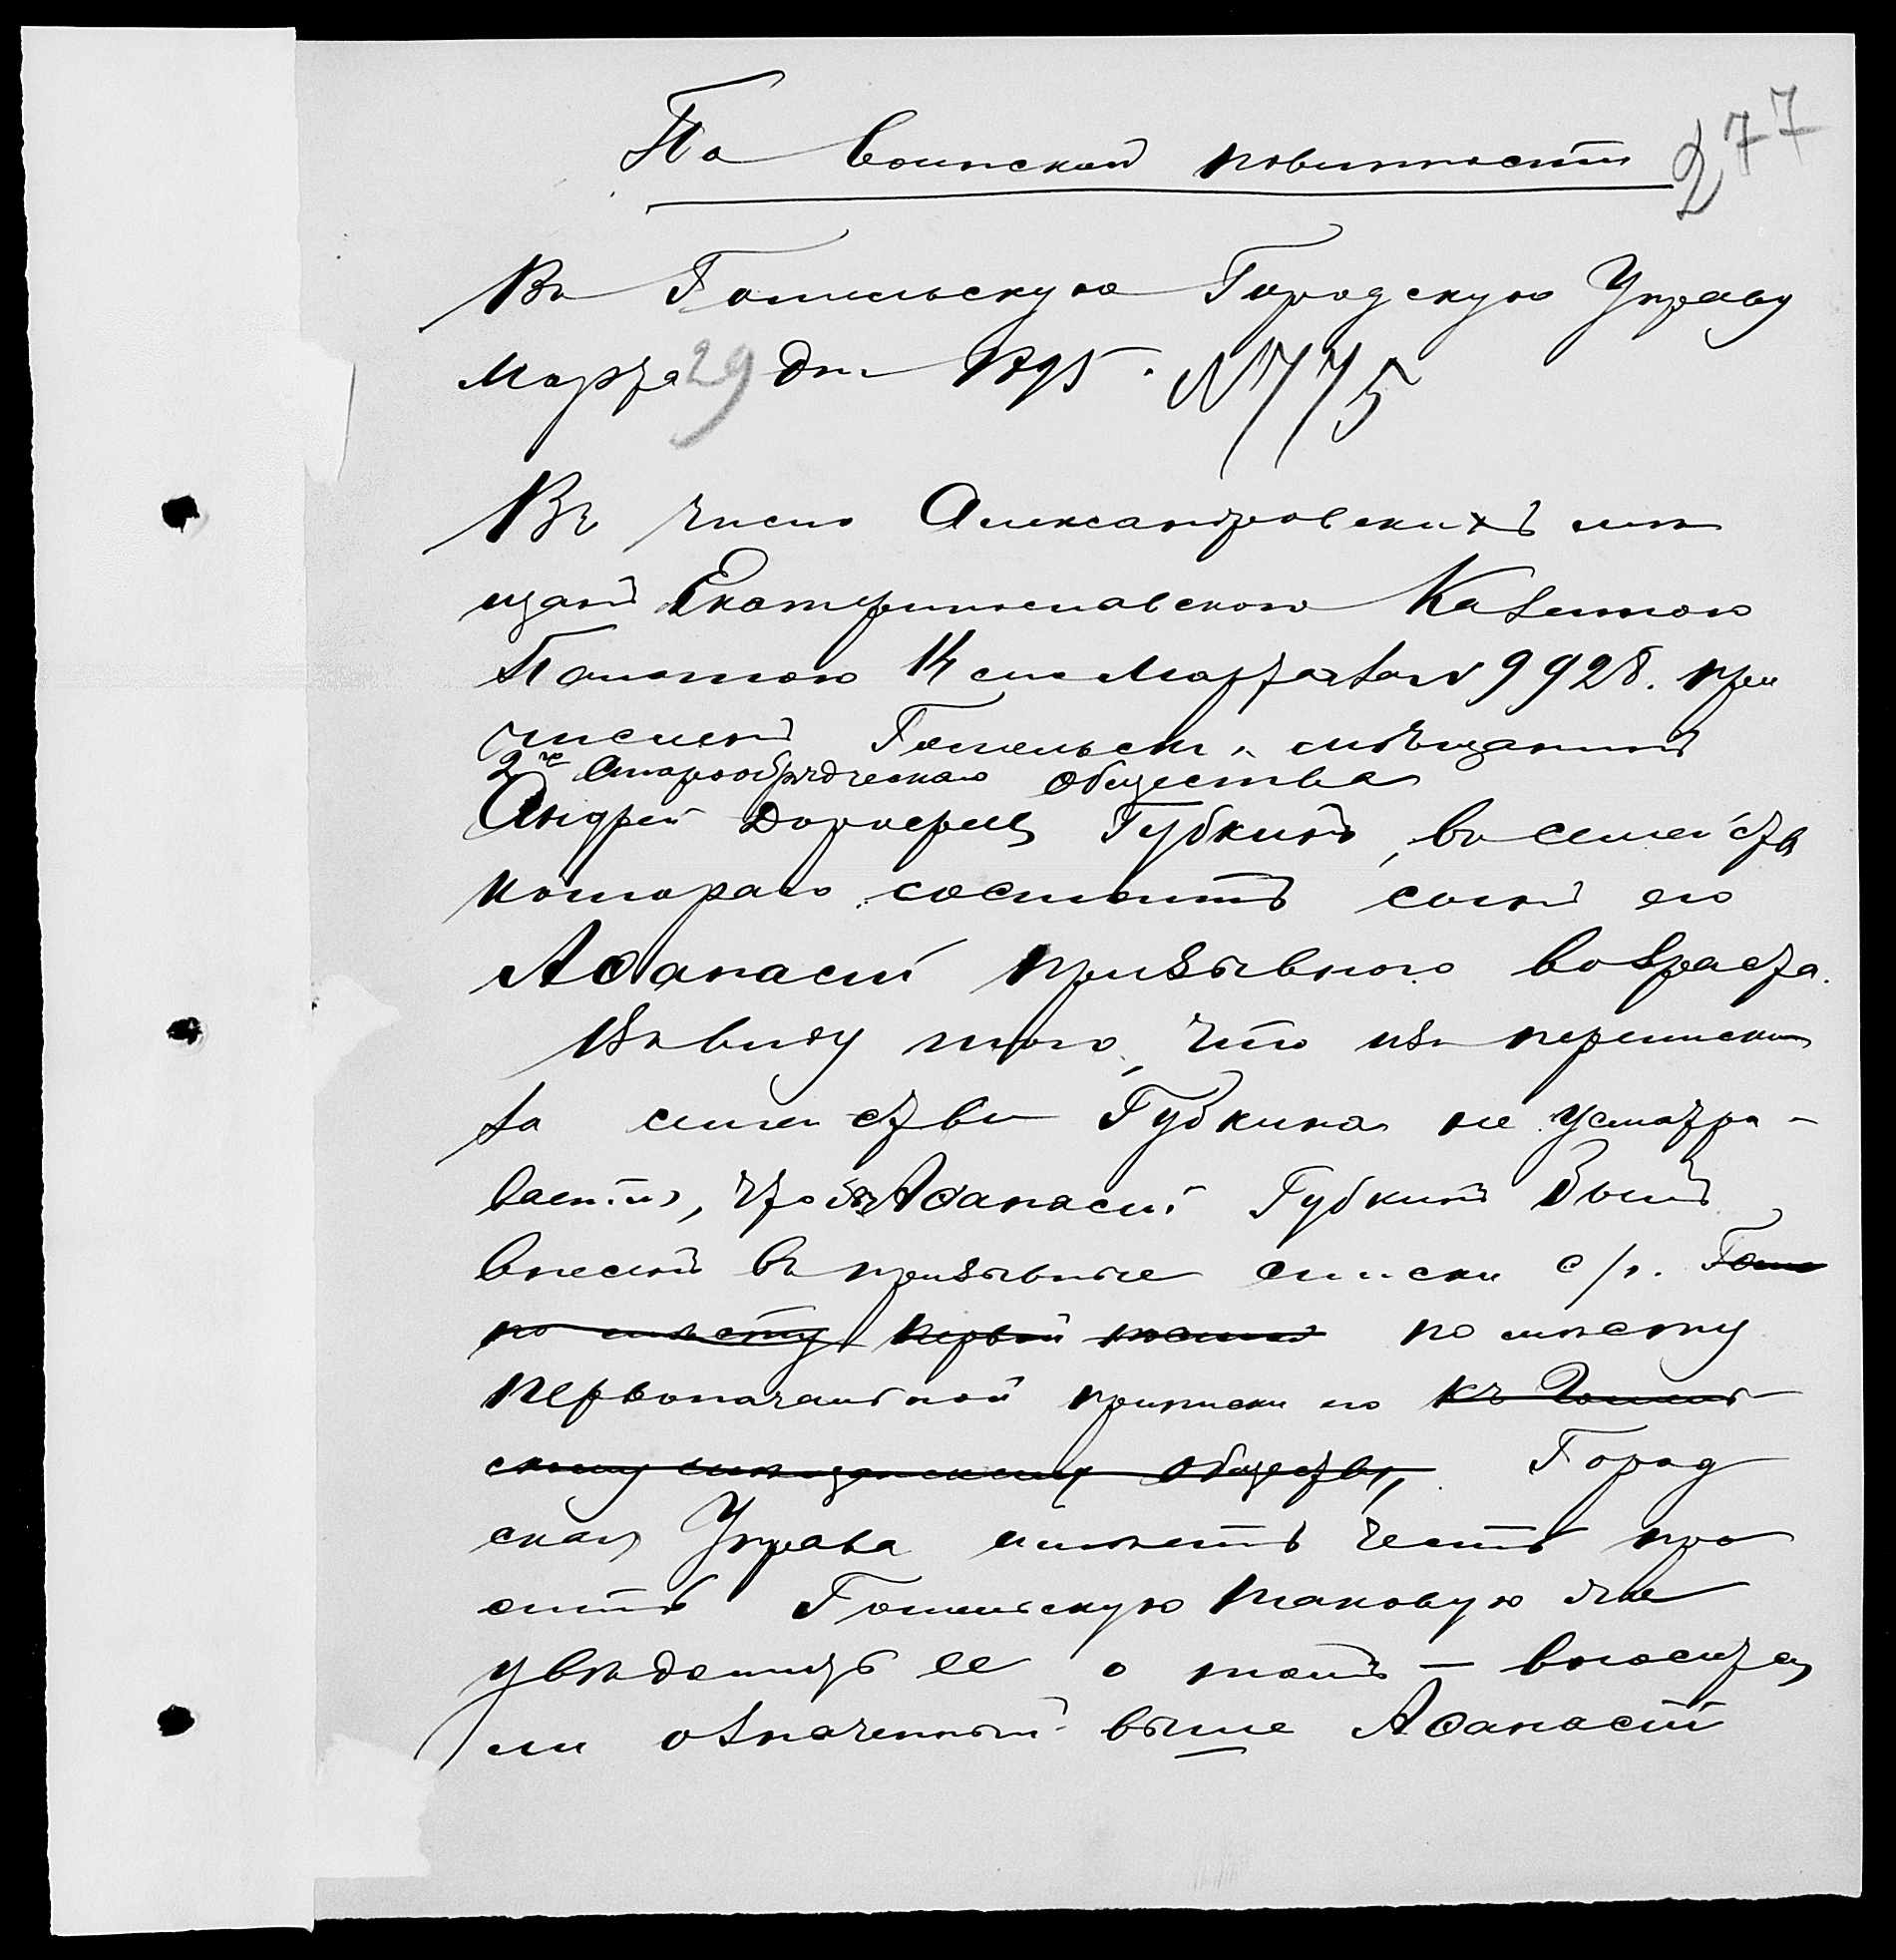 По воинской повинности
277
Въ Гомельскую Городскую Управу
Марта 29 дн 1895. № 775
Въ число Александровскихъ мѣ
щанъ Екатеринославскою Казенною
Палатою 14 сего Марта за № 9928. при
численъ Гомельскій мѣщанинъ
2го Старообрядческаго общества
Андрей Доровеевъ Губкинъ, въ семействѣ
котораго состоитъ сынъ его
Аѳанасій призывного возраста.
Въ виду того, что изъ переписки
за семейство Губкина не усматри-
вается, чтобы Аѳанасій Губкинъ былъ
внесенъ въ призывные списки с/г. Гоме
по мѣсту первой по мѣсту
первоначальной приписки его къ Гомель-
скому мѣщанскому обществу, Город
ская Управа имѣетъ честь про
сить Гомельскую таковую же
увѣдомить ее о томъ — вносится
ли означенный выше Аѳанасій